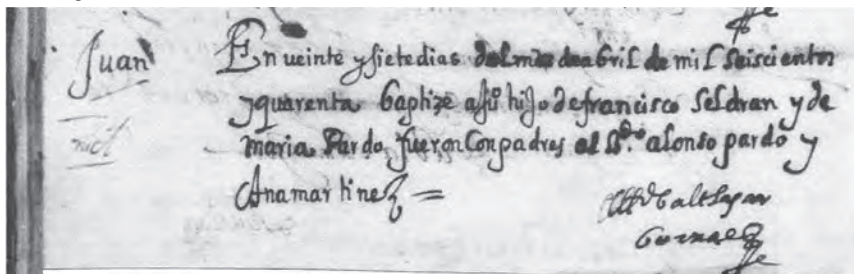 Juan
En veinte y siete dias del mes de abril de mil seiscientos
y quarenta baptize a Juº hijo de francisco seldran y de
maria Pardo, fueron Conpadres el Ldº. alonso pardo y
Ana martinez =
Baltasar